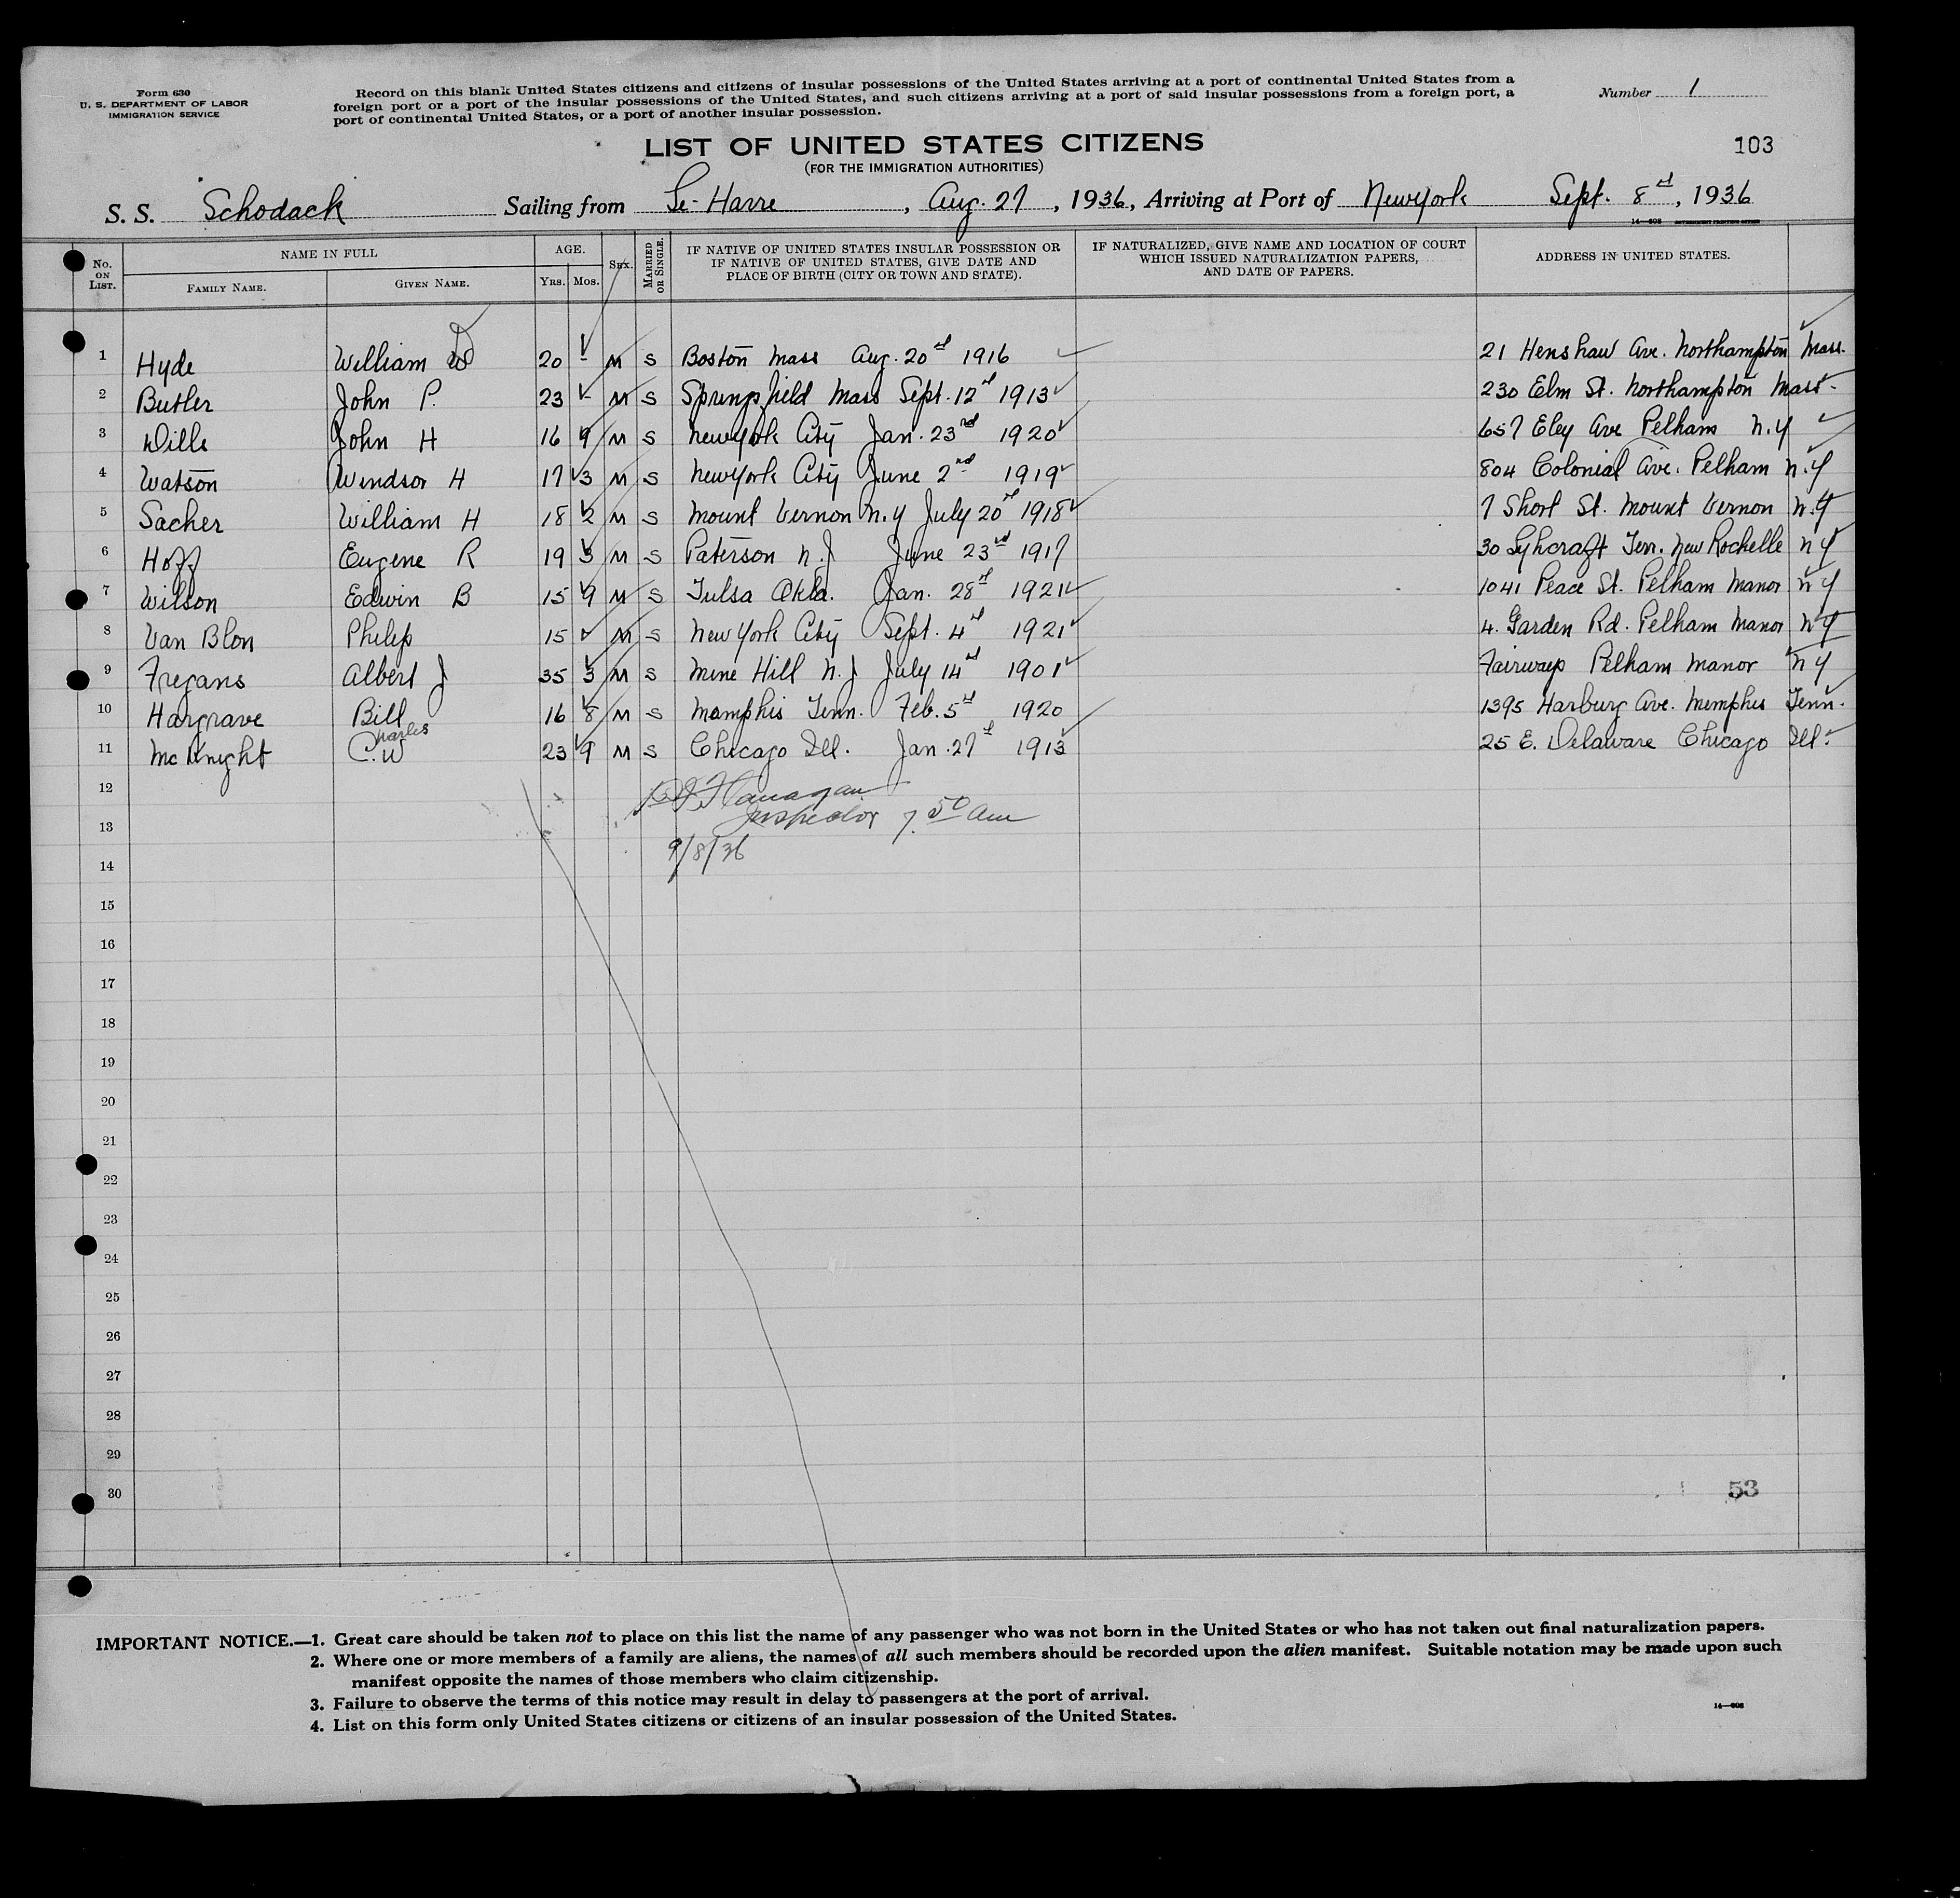 Form 630
U. S. DEPARTMENT OF LABOR
IMMIGRATION SERVICE
Record on this blank United States citizens and citizens of insular possessions of the United States arriving at a port of continental United States from a
foreign port or a port of the insular possessions of the United States, and such citizens arriving at a port of said insular possessions from a foreign port, a
port of continental United States, or a port of another insular possession.
Number 1
LIST OF UNITED STATES CITIZENS
(FOR THE IMMIGRATION AUTHORITIES)
103
S. S. Schodack Sailing from Le-Havre, Aug. 27, 1936, Arriving at Port of New York Sept. 8th, 1936
14—608 GOVERNMENT PRINTING OFFICE
No. ON LIST.
NAME IN FULL
FAMILY NAME. GIVEN NAME.
AGE.
YRS. MOS.
SEX.
MARRIED OR SINGLE.
IF NATIVE OF UNITED STATES INSULAR POSSESSION OR
IF NATIVE OF UNITED STATES, GIVE DATE AND
PLACE OF BIRTH (CITY OR TOWN AND STATE).
IF NATURALIZED, GIVE NAME AND LOCATION OF COURT
WHICH ISSUED NATURALIZATION PAPERS,
AND DATE OF PAPERS.
ADDRESS IN UNITED STATES.
1 Hyde William W 20 - M S Boston Mass Aug. 20 1916 21 Henshaw Ave. Northampton Mass.
2 Butler John P. 23 - M S Springfield Mass Sept. 12 1913 230 Elm St. Northampton Mass.
3 Wills John H 16 9 M S New York City Jan. 23rd 1920 657 Ely Ave Pelham N.Y
4 Watson Windsor H 17 3 M S New York City June 2nd 1919 804 Colonial Ave. Pelham N.Y
5 Sacher William H 18 2 M S Mount Vernon N.Y July 20 1918 7 Short St. Mount Vernon N.Y
6 Hoff Eugene R 19 3 M S Paterson N.J June 23rd 1917 30 Terr. New Rochelle N Y
7 Wilson Edwin B 15 9 M S Tulsa Okla. Jan. 28 1921 1041 Peace St. Pelham Manor N Y
8 Van Blon Philip 15 M S New York City Sept. 4 1921 4. Garden Rd. Pelham Manor N Y
9 Fregans Albert J 35 3 M S Mine Hill N.J July 14 1901 Fairways Pelham Manor N Y
10 Hargrave Bill 16 8 M S Memphis Tenn. Feb. 5 1920 1395 Harbury Ave. Memphis Tenn.
Charles
11 McKnight C. W 23 9 M S Chicago Ill. Jan. 27 1913 25 E. Delaware Chicago Ill.
12 Flanagan
Inspector 7.50 am
13
9/8/36
14
15
16
17
18
19
20
21
22
23
24
25
26
27
28
29
30
53
IMPORTANT NOTICE.—1. Great care should be taken not to place on this list the name of any passenger who was not born in the United States or who has not taken out final naturalization papers.
2. Where one or more members of a family are aliens, the names of all such members should be recorded upon the alien manifest. Suitable notation may be made upon such
manifest opposite the names of those members who claim citizenship.
3. Failure to observe the terms of this notice may result in delay to passengers at the port of arrival.
4. List on this form only United States citizens or citizens of an insular possession of the United States.
14—608